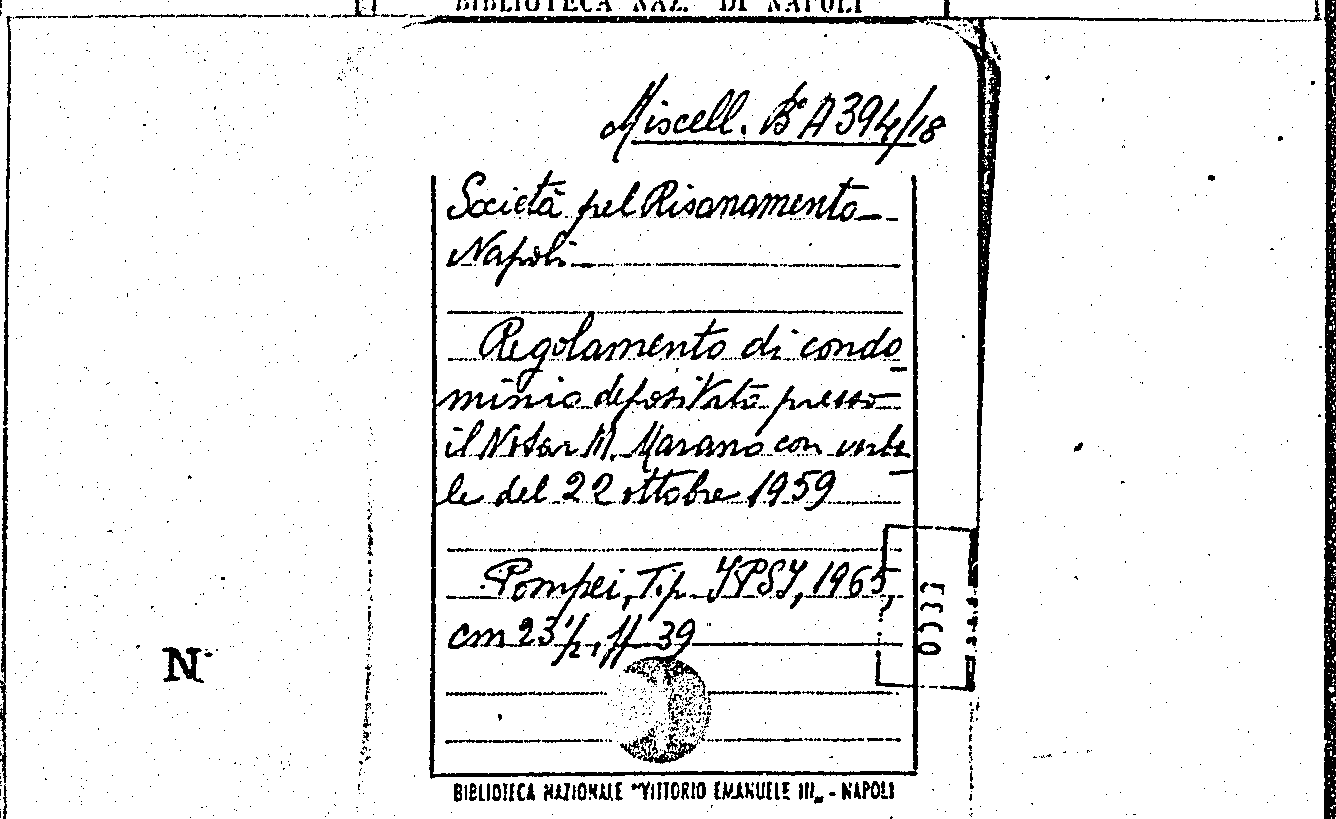 BIBLIOTECA NAZ. DI NAPOLI
Miscell. Bª A 394/18
Società pel Risanamento
Napoli
Regolamento di condo
minio depositato presso
il Notar M. Marano con verba
le del 22 ottobre 1959
Pompei, Tip. IPSI, 1965,
cm 23 1/2, pp 39
N.
BIBLIOTECA NAZIONALE "VITTORIO EMANUELE III„ - NAPOLI